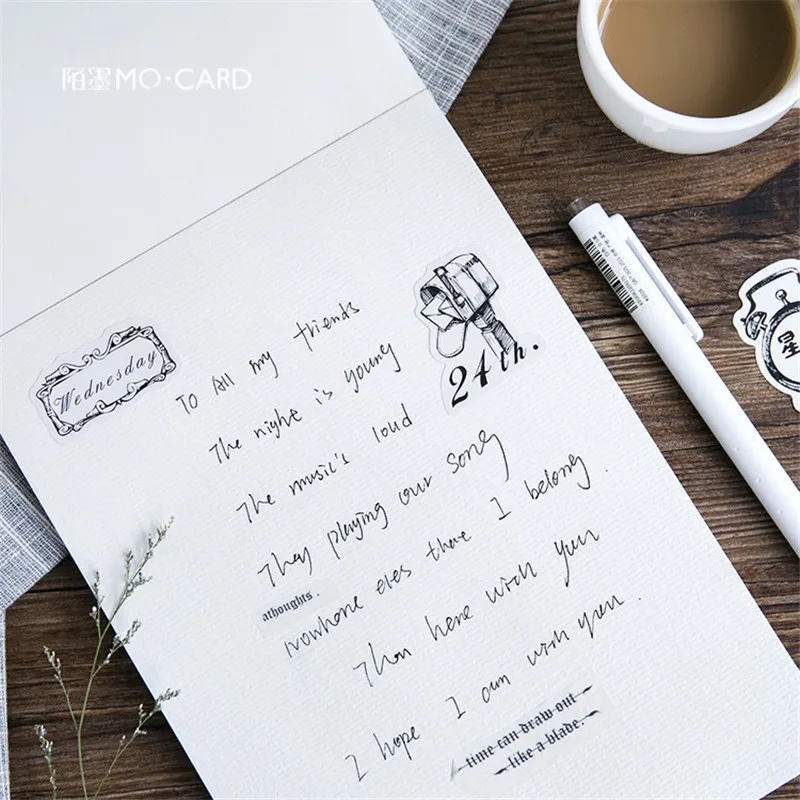 陌墨MO·CARD
Wednesday
24th.
To All my friends
The night is young
The music's loud
They playing our song
athoughts.
Nowhere eles there I belong.
Than here with yun
I hope I am with yun.
time can draw out
like a blade.
星